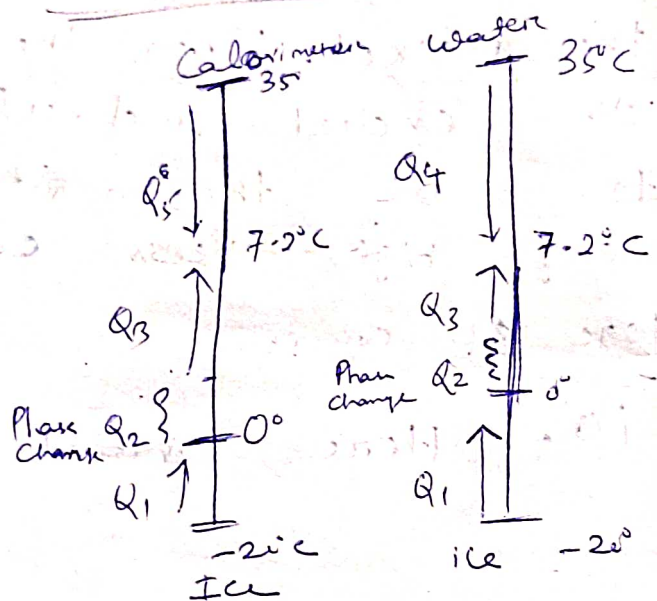 Calorimeter
35
Q5
7.2°C
Q3
Phase Change
Q2
0°
Q1
-20°C
ICE
Water
35°C
Q4
7.2°C
Q3
Phase change
Q2
0°
Q1
ice
-20°